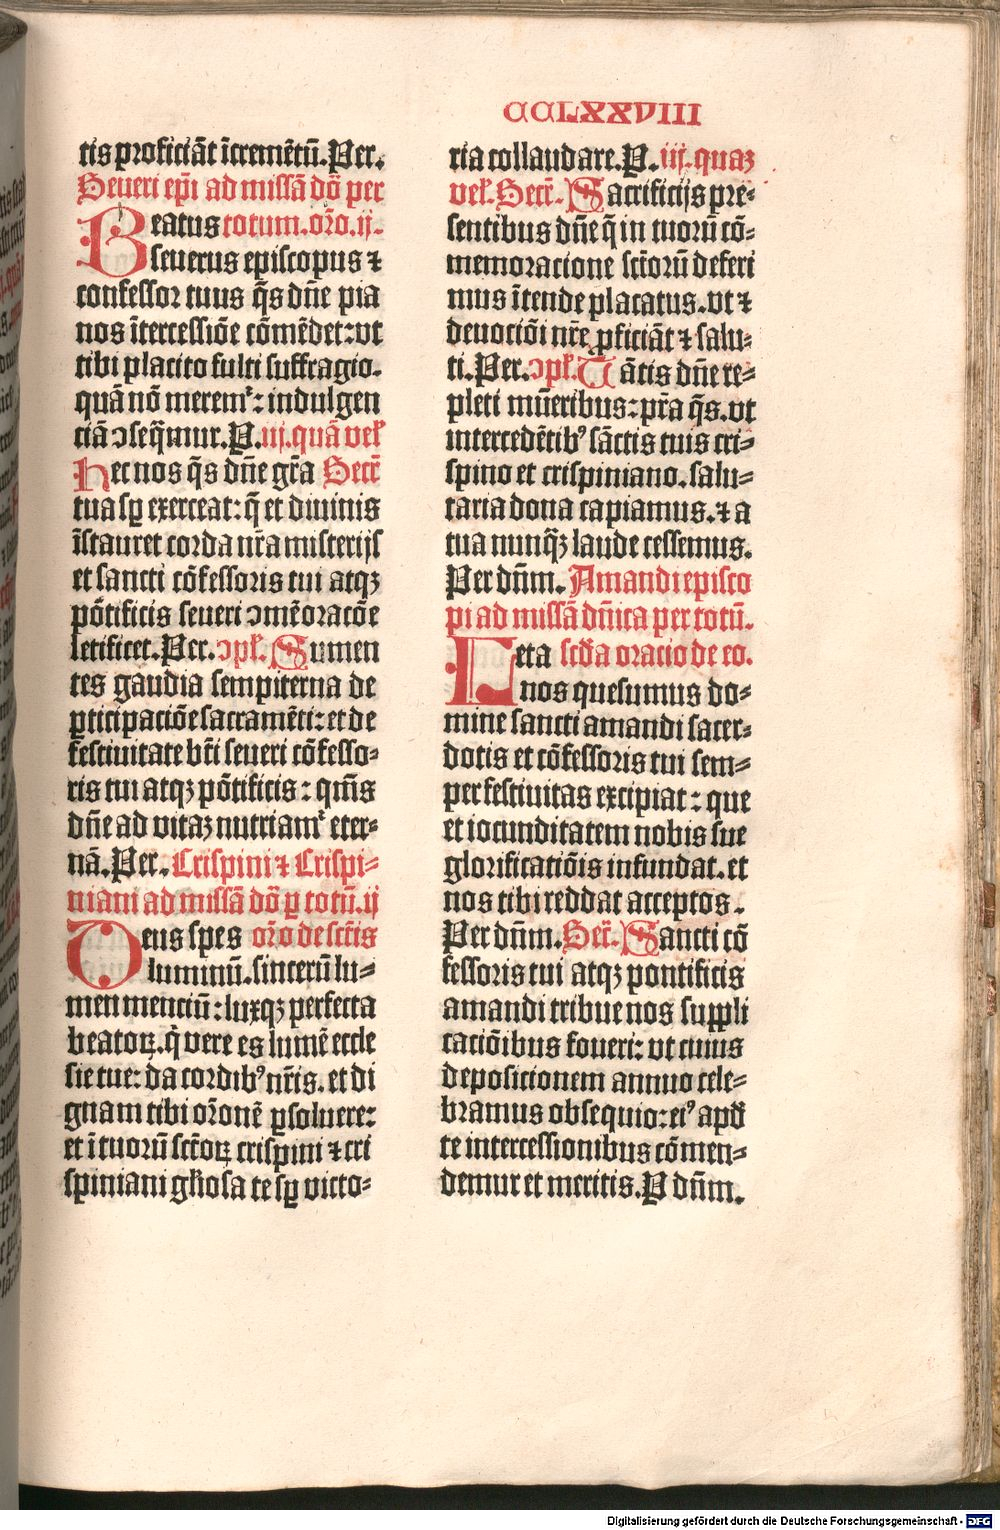 CCLXXVIII
tis proficiāt īcremētū. Per.
Seueri ep̄i ad missā dō per
Beatus totum. or̄o. ij.
seuerus episcopus ⁊
confessor tuus q̄s dn̄e pia
nos ītercessiōe cōmēdet: vt
tibi placito fulti suffragio.
quā nō meremꝰ: indulgen
ciā ↄseq̄mur. P. iij. quā vel̄
Hec nos q̄s dn̄e gr̄a Secr̄
tua sꝑ exerceat: q̄ et diuinis
īstauret corda nr̄a misterijs
et sancti cōfessoris tui atqꝫ
pōtificis seueri ↄmēoracōe
letificet. Per. ↄpl̄. Sumen
tes gaudia sempiterna de
ꝑticipaciōe sacramēti: et de
festiuitate bt̄i seueri cōfesso⸗
ris tui atqꝫ pōtificis: qm̄s
dn̄e ad vitaꝫ nutriamꝰ eter⸗
nā. Per. Crispini ⁊ Crispi⸗
niani ad missā dō ꝑ totū. ij
Deus spes or̄o de sct̄is
luminū. sincerū lu⸗
men menciū: luxqꝫ perfecta
beatoꝝ. q̇ vere es lumē eccle
sie tue: da cordibꝰ nr̄is. et di
gnam tibi or̄onē ꝑsoluere:
et ī tuorū sct̄oꝝ crispini ⁊ cri
spiniani gl̄iosa te sꝑ victo⸗
ria collaudare. P. iij. quaꝫ
vel̄. Secr̄. Sacrificijs pre⸗
sentibus dn̄e q̄ in tuorū cō⸗
memoracione sct̄orū deferi
mus ītende placatus. vt ⁊
deuociōi nr̄e ꝓficiāt ⁊ salu⸗
ti. Per. ↄpl̄. Uātis dn̄e re⸗
pleti mūeribus: pr̄a q̄s. vt
intercedētibꝰ sāctis tuis cri⸗
spino et crispiniano. salu⸗
taria dona capiamus. ⁊ a
tua nunq̄ꝫ laude cessemus.
Per dn̄m. Amandi episco
pi ad missā dn̄ica per totū.
Leta scd̄a oracio de co.
nos quesumus do⸗
mine sancti amandi sacer⸗
dotis et cōfessoris tui sem⸗
per festiuitas excipiat: que
et iocunditatem nobis sue
glorificatiōis infundat. et
nos tibi reddat acceptos.
Per dn̄m. Secr̄. Sancti cō
fessoris tui atqꝫ pontificis
amandi tribue nos suppli
caciōibus foueri: vt cuius
deposicionem annuo cele⸗
bramus obsequio: eiꝰ apd̄
te intercessionibus cōmen⸗
demur et meritis. P dn̄m.
Digitalisierung gefördert durch die Deutsche Forschungsgemeinschaft - DFG